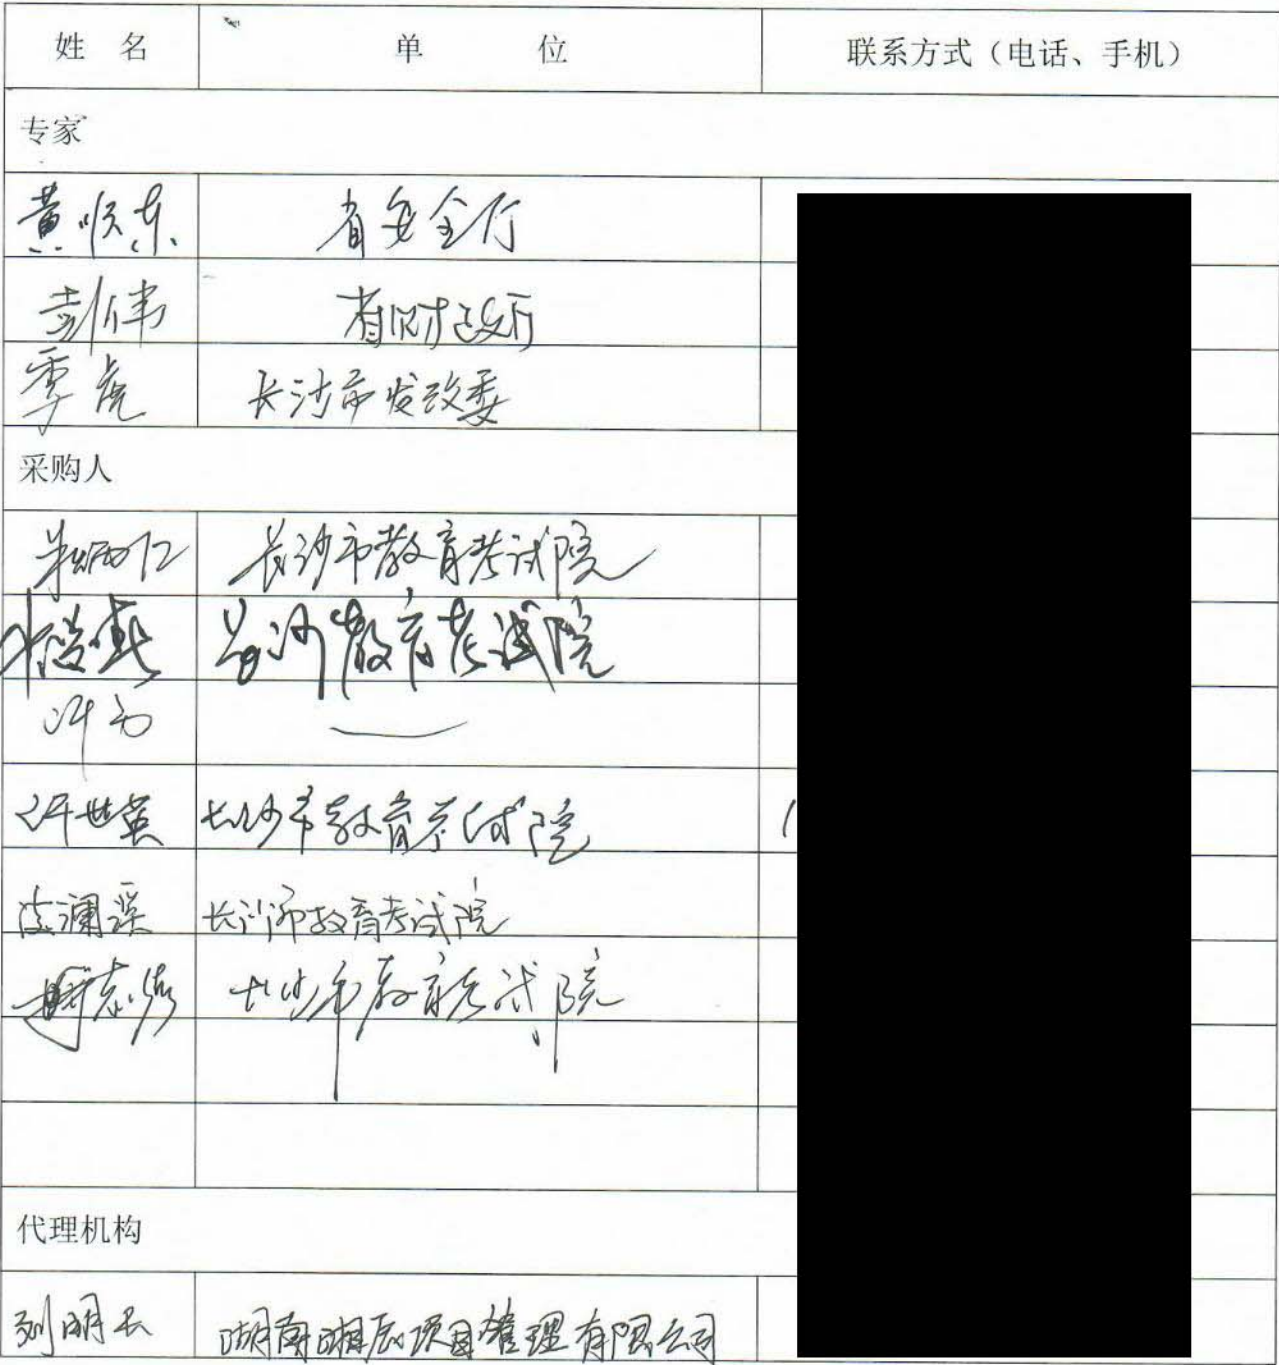 姓 名 单 位 联系方式（电话、手机）
专家
黄顺东 省安全厅
彭伟 省财政厅
季虎 长沙市发改委
采购人
朱炳仁 长沙市教育考试院
长沙教育考试院
许世英 长沙市教育考试院
凌澜溪 长沙市教育考试院
长沙市教育考试院
代理机构
刘明长 湖南湘辰项目管理有限公司